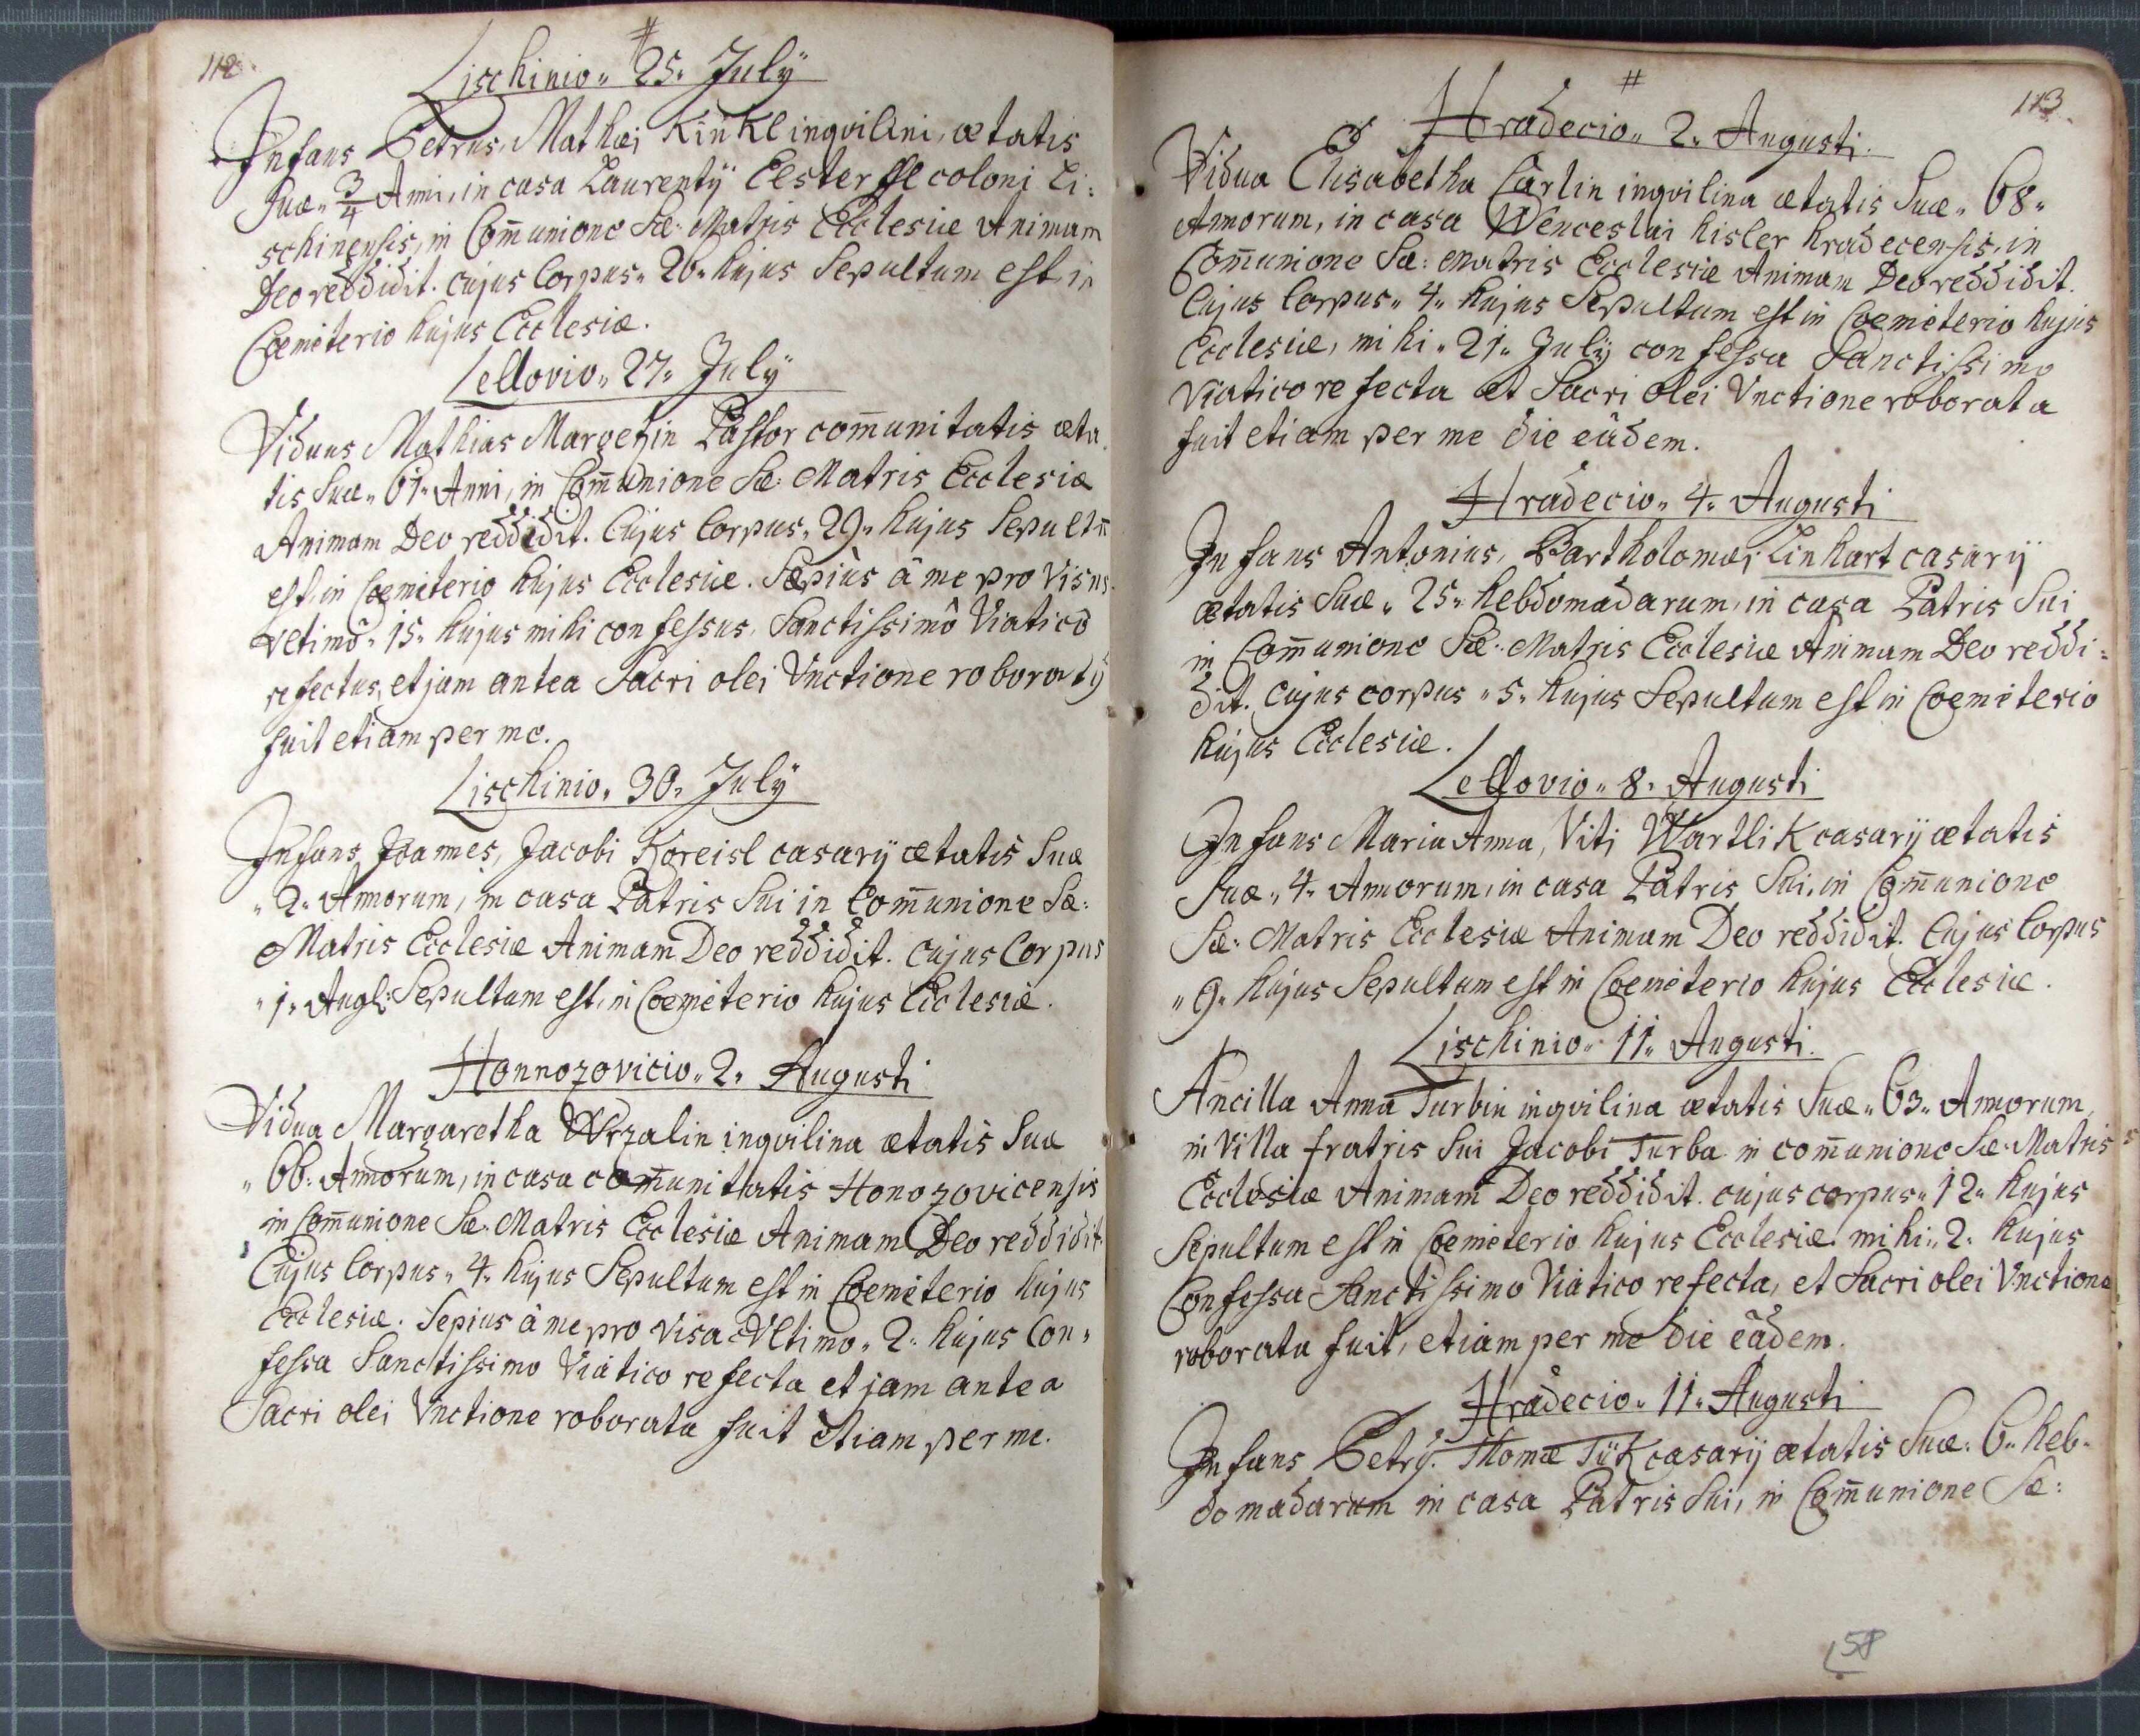 112.
#
Lischinio„ 25„ Julÿ
Infans Petrus, Mathæi Kinkl inqvilini, ætatis
suæ„ 3/4 Anni, in casa Laurentÿ coloni Li:
schinensis, in Com̄unione Sæ: Matris Ecclesiæ Animam
Deo reddidit. cujus Corpus„ 26„ hujus Sepultum est, in
Cœmeterio hujus Ecclesiæ.
Lellovio„ 27„ Julÿ
Viduus Mathias Pastor com̄unitatis æta
tis suæ„ 61„ Anni, in Com̄unione Sæ: Matris Ecclesiæ
Animam Deo reddidit. Cujus Corpus„ 29„ hujus Sepultū
est, in Cœmeterio hujus Ecclesiæ. Sæpiùs â me pro visus.
Vltimô„ 15„ hujus mihi confessus, Sanctissimô Viaticô
refectus, et jam antea Sacri olei Vnctione roboratꝰ
fuit etiam per me.
Lischinio„ 30„ Julÿ
Infans Joannes, Jacobi Koreisl casarÿ ætatis suæ
„ 2„ Annorum, in casa Patris sui in Com̄unione Sæ:
Matris Ecclesiæ Animam Deo reddidit. cujus Corpus
„ 1„ Augs: Sepultum est, in Cœmeterio hujus Ecclesiæ.
Honnozovicio„ 2„ Augusti
Vidua Margaretha Wrzalin inqvilina ætatis suæ
„ 66„ Annorum, in casa com̄unitatis Honozovicensis
in Com̄unione Sæ: Matris Ecclesiæ Animam Deo reddidit.
Cujus Corpus„ 4„ hujus Sepultum est in Cœmeterio hujus
Ecclesiæ. Sepius à me pro visa Vltimo„ 2„ hujus Con„
fessa Sanctissimo Viatico refecta et jam antea
Sacri olei Vnctione roborata fuit etiam per me.
113.
#
Hradecio„ 2„ Augusti.
Vidua Elisabetha Carlin inqvilina ætatis suæ„ 68„
Annorum, in casa Wenceslai Kisler hradecensis, in
Com̄unione Sæ: Matris Ecclesiæ Animam Deo reddidit.
Cujus Corpus„ 4„ hujus Sepultum est in Cœmeterio hujus
Ecclesiæ, mihi„ 21„ Julÿ confessa Sanctissimo
Viatico refecta et Sacri olei Vnctione roborata
fuit etiam per me die eâdem.
Hradecio„ 4„ Augusti
Infans Antonius, Bartholomæi Linhart casarÿ
ætatis suæ„ 25„ hebdomadarum, in casa Patris sui
in Com̄unione Sæ: Matris Ecclesiæ Animam Deo reddi:
dit. cujus corpus „ 5„ hujus Sepultum est in Cœmeterio
hujus Ecclesiæ.
Lellovio„ 8„ Augusti
Infans Maria Anna, Viti Wartlik casarÿ ætatis
suæ„ 4„ Annorum, in casa Patris sui, in Com̄unione
Sæ: Matris Ecclesiæ Animam Deo reddidit. Cujus Corpus
„ 9„ hujus Sepultum est in Cœmeterio hujus Ecclesiæ.
Lischinio„ 11„ Augusti.
Ancilla Anna Turbin inqvilina ætatis suæ„ 63„ Annorum,
in Villa fratris sui Jacobi Turba in com̄unione Sæ: Matris
Ecclesiæ Animam Deo reddidit. cujus corpus„ 12„ hujus
Sepultum est in Cœmeterio hujus Ecclesiæ. mihi„ 2„ hujus
Confessa Sanctissimo Viatico refecta, et Sacri olei Vnctione
roborata fuit, etiam per me die eâdem.
Hradecio„ 11„ Augusti
Infans Petrꝰ. Thomæ Tük casarÿ ætatis suæ„ 6„ heb„
domadarum in casa Patris sui, in Com̄unione Sæ:
58